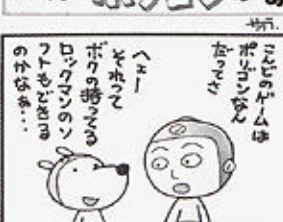 こんどのゲームは
ポリゴンなん
だってさ
へェー
それって
ボクの持ってる
ロックマンのソ
フトもできる
のかなぁ・・